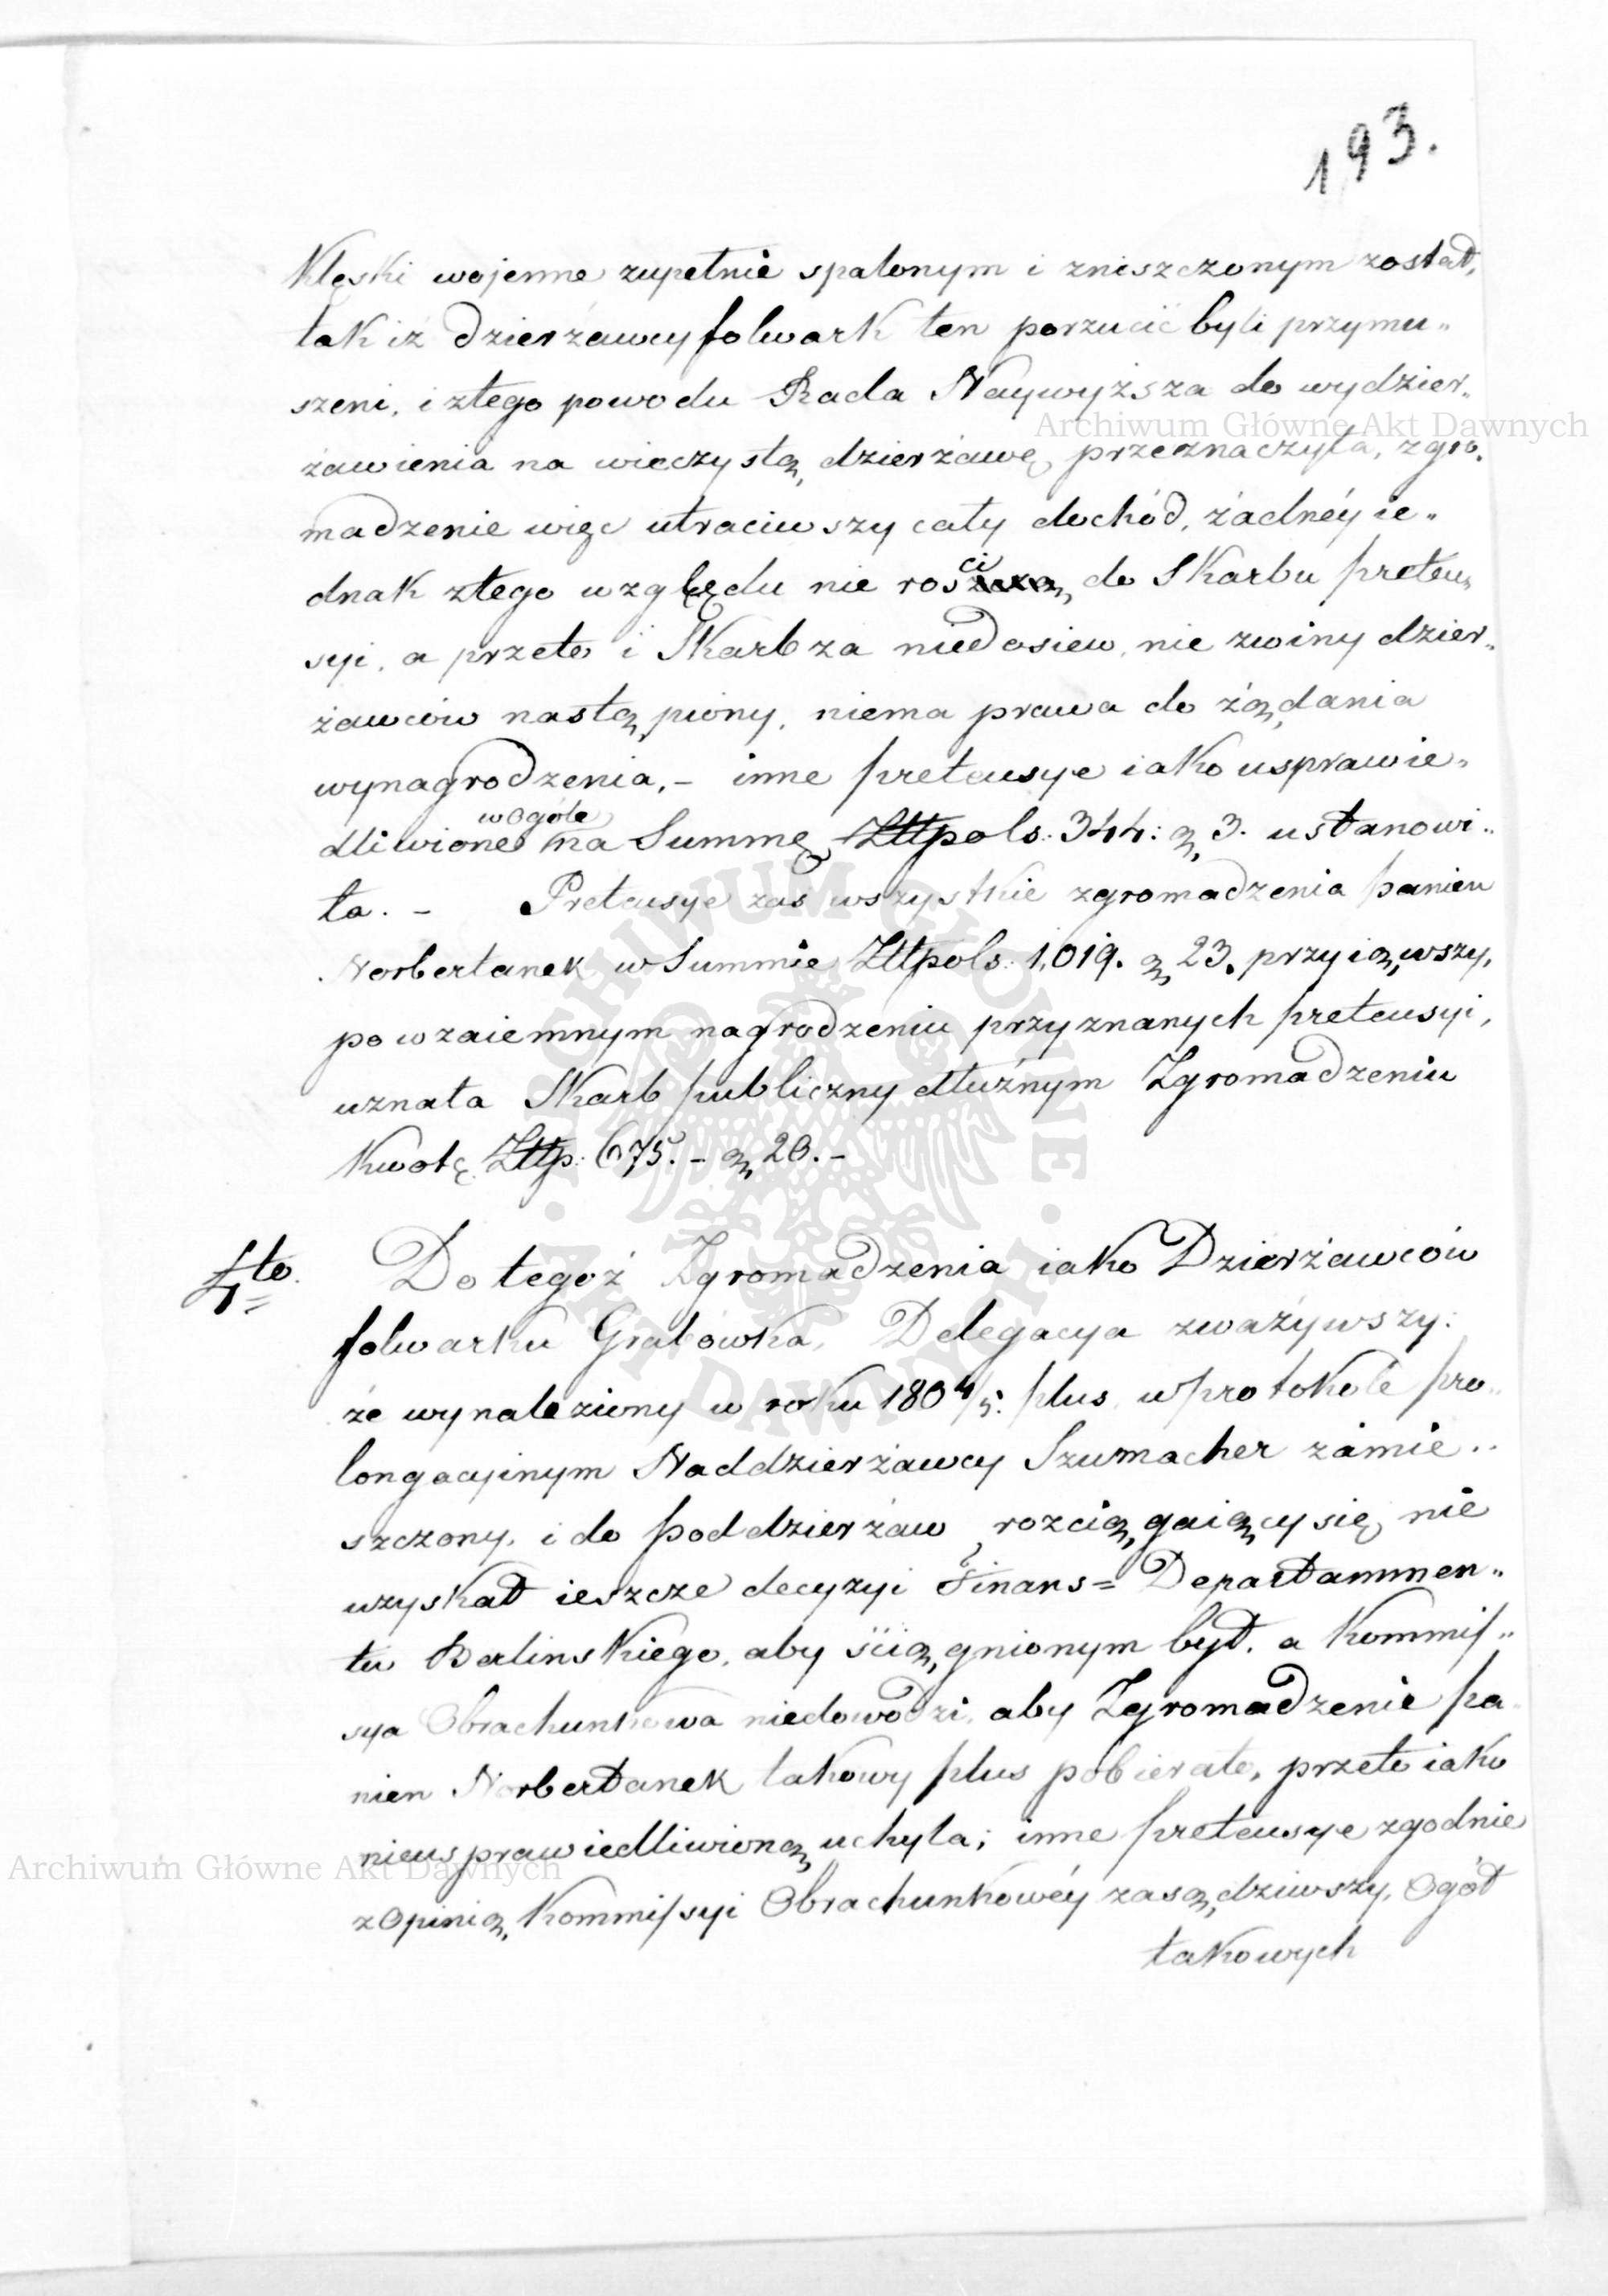 193.
Klęski wojenne zupełnie spalonym i zniszczonym został,
tak iż dzierżawcy folwark ten porzucić byli przymu„
szeni, i ztego powodu Rada Naywyższa do wydzier„
Archiwum Główne Akt Dawnych
żawienia na wieczystą dzierżawę przeznaczyła, zgro„
madzenie więc utraciwszy cały dochód, żadnéy ie„
dnak ztego względu nie rości do Skarbu preten„
syi, a przeto i Skarb za niedosiew, nie zwiny dzier„
żawców nastąpiony, niema prawa do żądania
wynagrodzenia,- inne pretensye iako usprawie„
wogóle
dliwione na Summę Złtpols: 344: g 3. ustanowi„
ła. - Pretensye zaś wszystkie zgromadzenia panien
Norbertanek w Summie Złtpols: 1,019. g 23. przyiąwszy,
po wzaiemnym nagrodzeniu przyznanych pretensyi,
uznała Skarb publiczny dłużnym Zgromadzeniu
Kwotę Złtp: 675.- g 20.-
4to Do tegoż Zgromadzenia iako Dzierżawców
folwarku Grabówka, Delegacya zważywszy:
że wynaleziony w roku 1804/5. plus w protokole pro„
longacyinym Naddzierżawcy Szumacher zamie„
szczony, i do poddzierżaw rozciągaiący się nie
uzyskał ieszcze decyzyi Finans= Departammen„
tu Berlinskiego, aby ściągnionym był. a Kommis„
sya Obrachunkowa niedowodzi, aby Zgromadzenie pa„
nien Norbertanek takowy plus pobierało, przeto iako
nieusprawiedliwioną uchyla; inne pretensye zgodnie
Archiwum Główne Akt Dawnych
z Opinią Kommissyi Obrachunkowéy zasądziwszy, Ogół
takowych
ARCHIWUM GŁÓWNE · AKT DAWNYCH ·